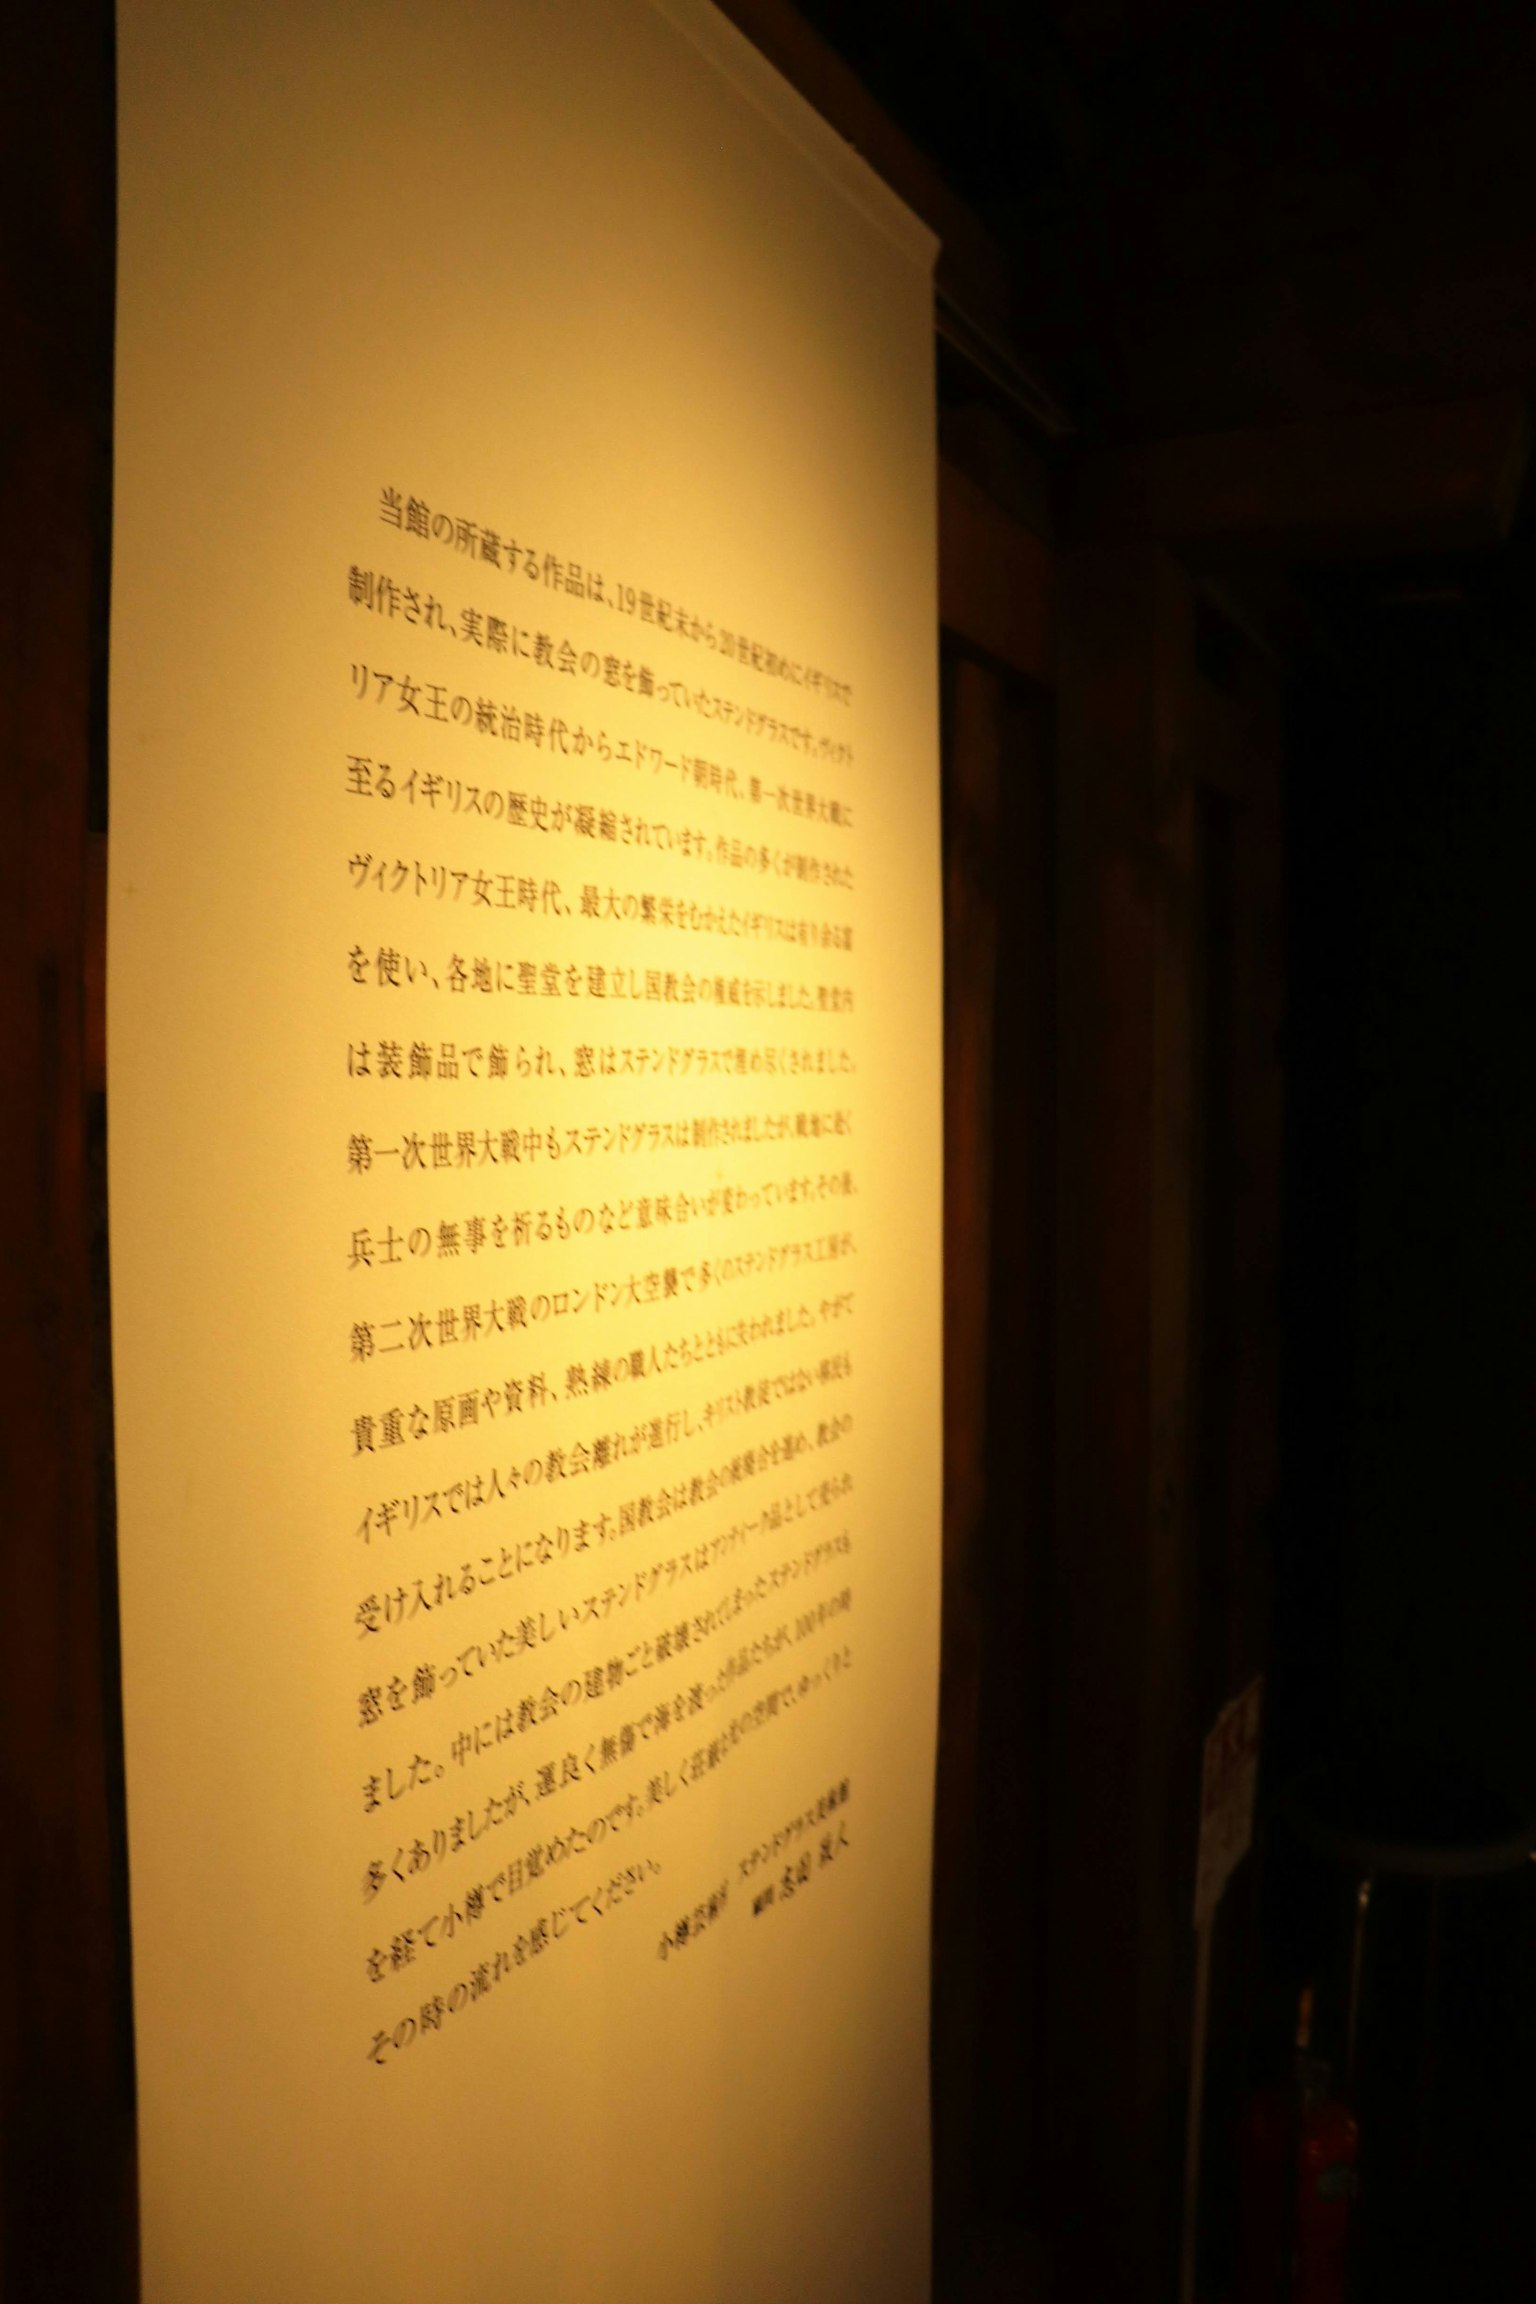 当館の所蔵する作品は、19世紀末から20世紀初めにイギリスで
制作され、実際に教会の窓を飾っていたステンドグラスです。ヴィクト
リア女王の統治時代からエドワード朝時代、第一次世界大戦に
至るイギリスの歴史が凝縮されています。作品の多くが制作された
ヴィクトリア女王時代、最大の繁栄をむかえたイギリスは有り余る富
を使い、各地に聖堂を建立し国教会の権威を示しました。聖堂内
は装飾品で飾られ、窓はステンドグラスで埋め尽くされました。
第一次世界大戦中もステンドグラスは制作されましたが、戦地に赴く
兵士の無事を祈るものなど意味合いが変わっています。その後、
第二次世界大戦のロンドン大空襲で多くのステンドグラス工房が、
貴重な原画や資料、熟練の職人たちとともに失われました。やがて
イギリスでは人々の教会離れが進行し、キリスト教徒ではない移民も
受け入れることになります。国教会は教会の統廃合を進め、教会の
窓を飾っていた美しいステンドグラスはアンティーク品として売られ
ました。中には教会の建物ごと破壊されてしまったステンドグラスも
多くありましたが、運良く無傷で海を渡った作品たちが、100年の時
を経て小樽で目覚めたのです。美しく荘厳な光の空間で、ゆっくりと
その時の流れを感じてください。
小樽芸術村 ステンドグラス美術館
顧問